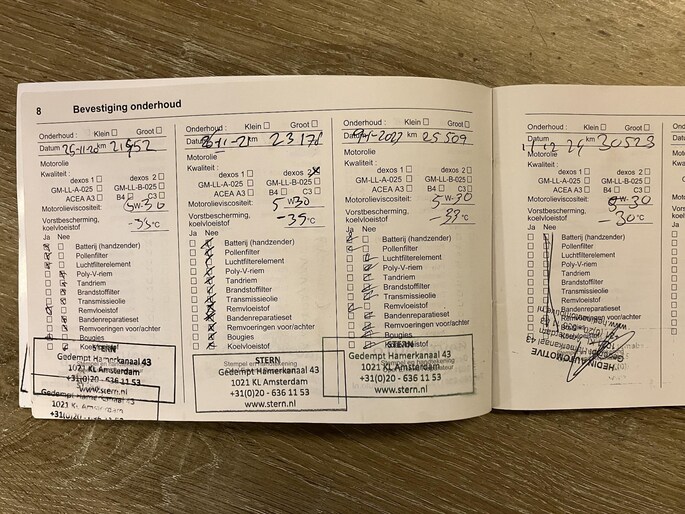 8 Bevestiging onderhoud
Onderhoud : Klein Groot
Datum 25-11-20 km
Motorolie
Kwaliteit :
dexos 1 dexos 2
GM-LL-A-025 GM-LL-B-025
ACEA A3 B4 C3
Motorolieviscositeit: 5W-30
Vorstbescherming,
koelvloeistof -35°C
Ja Nee
Batterij (handzender)
Pollenfilter
Luchtfilterelement
Poly-V-riem
Tandriem
Brandstoffilter
Transmissieolie
Remvloeistof
Bandenreparatieset
Remvoeringen voor/achter
Bougies
STERN
Gedempt Hamerkanaal 43
1021 KL Amsterdam
+31(0)20 - 636 11 53
www.stern.nl
1021 KL Amsterdam
+31(0)20 - 636 11 53
Onderhoud : Klein Groot
Datum km
Motorolie
Kwaliteit :
dexos 1 dexos 2
GM-LL-A-025 GM-LL-B-025
ACEA A3 B4 C3
Motorolieviscositeit: 5W30
Vorstbescherming,
koelvloeistof -35°C
Ja Nee
Batterij (handzender)
Pollenfilter
Luchtfilterelement
Poly-V-riem
Tandriem
Brandstoffilter
Transmissieolie
Remvloeistof
Bandenreparatieset
Remvoeringen voor/achter
Bougies
Koelvloeistof
STERN
Gedempt Hamerkanaal 43
1021 KL Amsterdam
+31(0)20 - 636 11 53
www.stern.nl
Onderhoud : Klein Groot
km 25509
Motorolie
Kwaliteit :
dexos 1 dexos 2
GM-LL-A-025 GM-LL-B-025
ACEA A3 B4 C3
Motorolieviscositeit: 5W-30
Vorstbescherming,
koelvloeistof -33°C
Ja Nee
Batterij (handzender)
Pollenfilter
Luchtfilterelement
Poly-V-riem
Tandriem
Brandstoffilter
Transmissieolie
Remvloeistof
Bandenreparatieset
Remvoeringen voor/achter
Bougies
Koelvloeistof
STERN
Gedempt Hamerkanaal 43
1021 KL Amsterdam
+31(0)20 - 636 11 53
www.stern.nl
Onderhoud : Klein Groot
Datum km 30523
Motorolie
Kwaliteit :
dexos 1 dexos 2
GM-LL-A-025 GM-LL-B-025
ACEA A3 B4 C3
Motorolieviscositeit: W-30
Vorstbescherming,
koelvloeistof -30°C
Ja Nee
Batterij (handzender)
Pollenfilter
Luchtfilterelement
Poly-V-riem
Tandriem
Brandstoffilter
Transmissieolie
Remvloeistof
Bandenreparatieset
Remvoeringen voor/achter
HEDIN AUTOMOTIVE